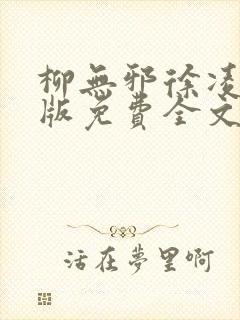 柳無邪徐凌
版免費全文
活在夢里啊